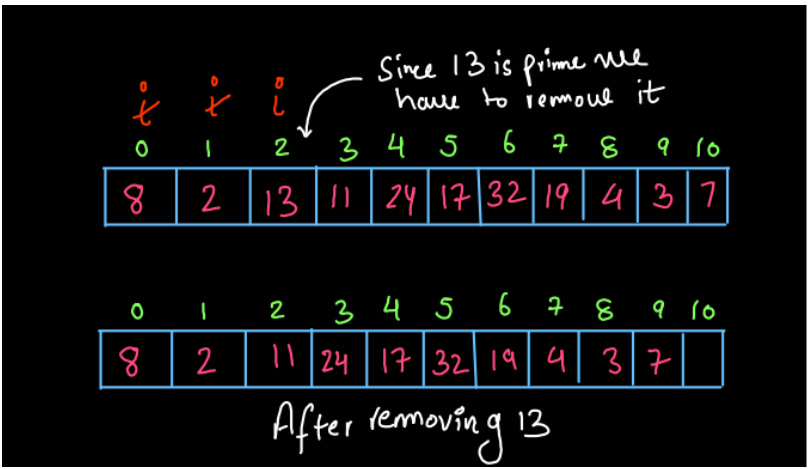 Since 13 is prime we
have to remove it
i i i
0 1 2 3 4 5 6 7 8 9 10
8 2 13 11 24 17 32 19 4 3 7
0 1 2 3 4 5 6 7 8 9 10
8 2 11 24 17 32 19 4 3 7
After removing 13